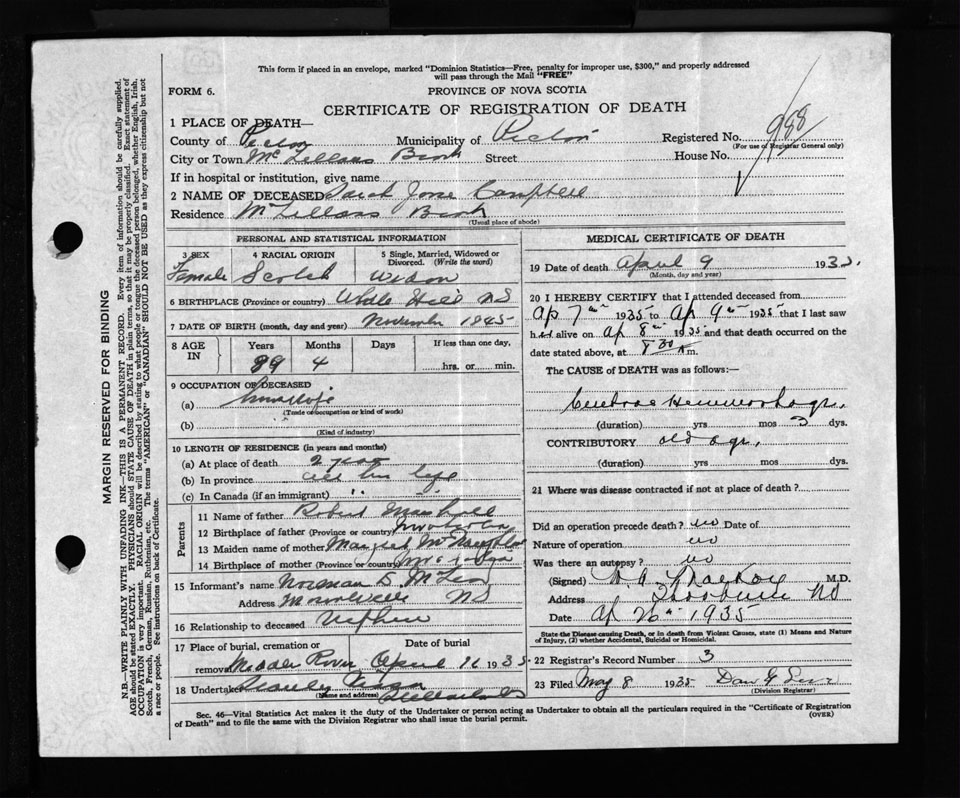 This form if placed in an envelope, marked "Dominion Statistics—Free, penalty for improper use, $300," and properly addressed
will pass through the Mail "FREE"
FORM 6.
PROVINCE OF NOVA SCOTIA
CERTIFICATE OF REGISTRATION OF DEATH
1 PLACE OF DEATH—
County of Pictou Municipality of Pictou Registered No. 988
(For use of Registrar General only)
City or Town McLellans Brook Street House No.
If in hospital or institution, give name
2 NAME OF DECEASED Sarah Jane Campbell
Residence McLellans Brook
(Usual place of abode)
PERSONAL AND STATISTICAL INFORMATION
3 SEX 4 RACIAL ORIGIN 5 Single, Married, Widowed or
Divorced. (Write the word)
Female Scotch Widow
6 BIRTHPLACE (Province or country) Hill NS
7 DATE OF BIRTH (month, day and year) November 1845
8 AGE IN Years Months Days If less than one day,
89 4 hrs. or min.
9 OCCUPATION OF DECEASED
(a) Housewife
(Trade of occupation or kind of work)
(b)
(Kind of industry)
10 LENGTH OF RESIDENCE (in years and months)
(a) At place of death 2 years
(b) In province all her life
(c) In Canada (if an immigrant) " "
Parents
11 Name of father Robert Marshall
12 Birthplace of father (Province or country)
13 Maiden name of mother Margaret
14 Birthplace of mother (Province or country)
15 Informant's name Norman D. McLeod
Address NS
16 Relationship to deceased Nephew
17 Place of burial, cremation or Date of burial
removal Middle River April 1935
18 Undertaker Stanley
(Name and address)
MEDICAL CERTIFICATE OF DEATH
19 Date of death April 9 1935
(Month, day and year)
20 I HEREBY CERTIFY that I attended deceased from
Ap 7th 1935 to Ap 9th 1935 that I last saw
her alive on Ap 8th 1935 and that death occurred on the
date stated above, at 8 30 A m.
The CAUSE of DEATH was as follows:—
Cerebral Hemmorhage
(duration) yrs mos 3 dys.
CONTRIBUTORY old age
(duration) yrs mos dys.
21 Where was disease contracted if not at place of death?
Did an operation precede death? no Date of
Nature of operation no
Was there an autopsy? no
(Signed) M.D.
Address Thorburn NS
Date Ap 26th 1935
State the Disease causing Death, or in death from Violent Causes, state (1) Means and Nature
of Injury, (2) whether Accidental, Suicidal or Homicidal.
22 Registrar's Record Number 3
23 Filed May 8 1935 Dan
(Division Registrar)
Sec. 46—Vital Statistics Act makes it the duty of the Undertaker or person acting as Undertaker to obtain all the particulars required in the "Certificate of Registration
of Death" and to file the same with the Division Registrar who shall issue the burial permit.
(OVER)
MARGIN RESERVED FOR BINDING
N.B.—WRITE PLAINLY WITH UNFADING INK—THIS IS A PERMANENT RECORD. Every item of information should be carefully supplied.
AGE should be stated EXACTLY. PHYSICIANS should STATE CAUSE OF DEATH in plain terms, so that it may be properly classified. Exact statement of
OCCUPATION is very important. RACIAL ORIGIN will be described by stating to what people or tongue the deceased person belonged, whether English, Irish,
Scotch, French, German, Russian, Ruthenian, etc. The terms "AMERICAN" or "CANADIAN" SHOULD NOT BE USED as they express citizenship but not
a race or people. See instructions on back of Certificate.